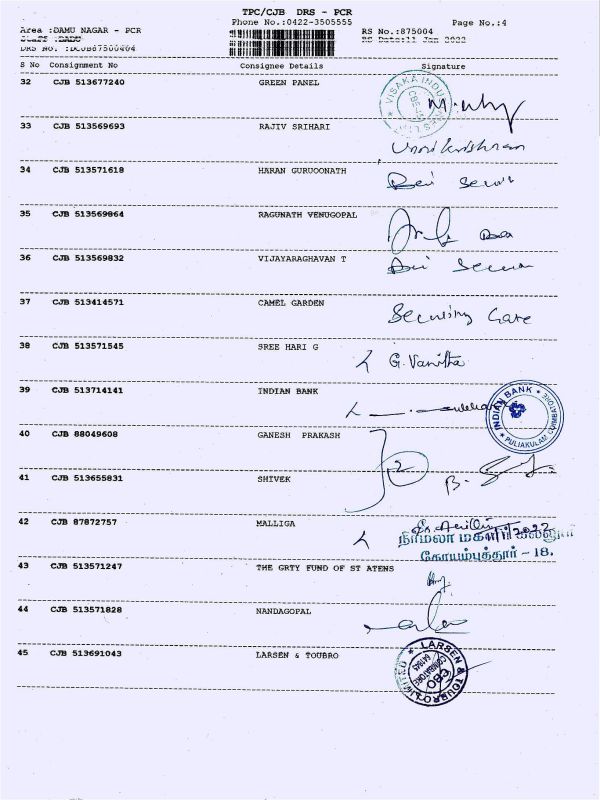 TPC/CJB DRS - PCR
Area :DAMU NAGAR - PCR
Phone No.:0422-3505555
Page No.:4
RS No.:875004
RS Date:11 Jan 2022
S No Consignment No Consignee Details Signature
32 CJB 513677240 GREEN PANEL
VISAKA INDU
33 CJB 513569693 RAJIV SRIHARI
Unnikrishnan
34 CJB 513571618 HARAN GURUOONATH
35 CJB 513569864 RAGUNATH VENUGOPAL
36 CJB 513569832 VIJAYARAGHAVAN T
37 CJB 513414571 CAMEL GARDEN
Security Gate
38 CJB 513571545 SREE HARI G
G. Vanitha
39 CJB 513714141 INDIAN BANK
INDIAN BANK * PULIAKULAM COIMBATORE *
40 CJB 88049608 GANESH PRAKASH
2
41 CJB 513655831 SHIVEK
42 CJB 87872757 MALLIGA
நிர்மலா மகளிர் கல்லூரி
கோயம்புத்தூர் - 18.
43 CJB 513571247 THE GRTY FUND OF ST ATENS
44 CJB 513571828 NANDAGOPAL
45 CJB 513691043 LARSEN & TOUBRO
LARSEN & TOUBRO LIMITED
COIMBATORE